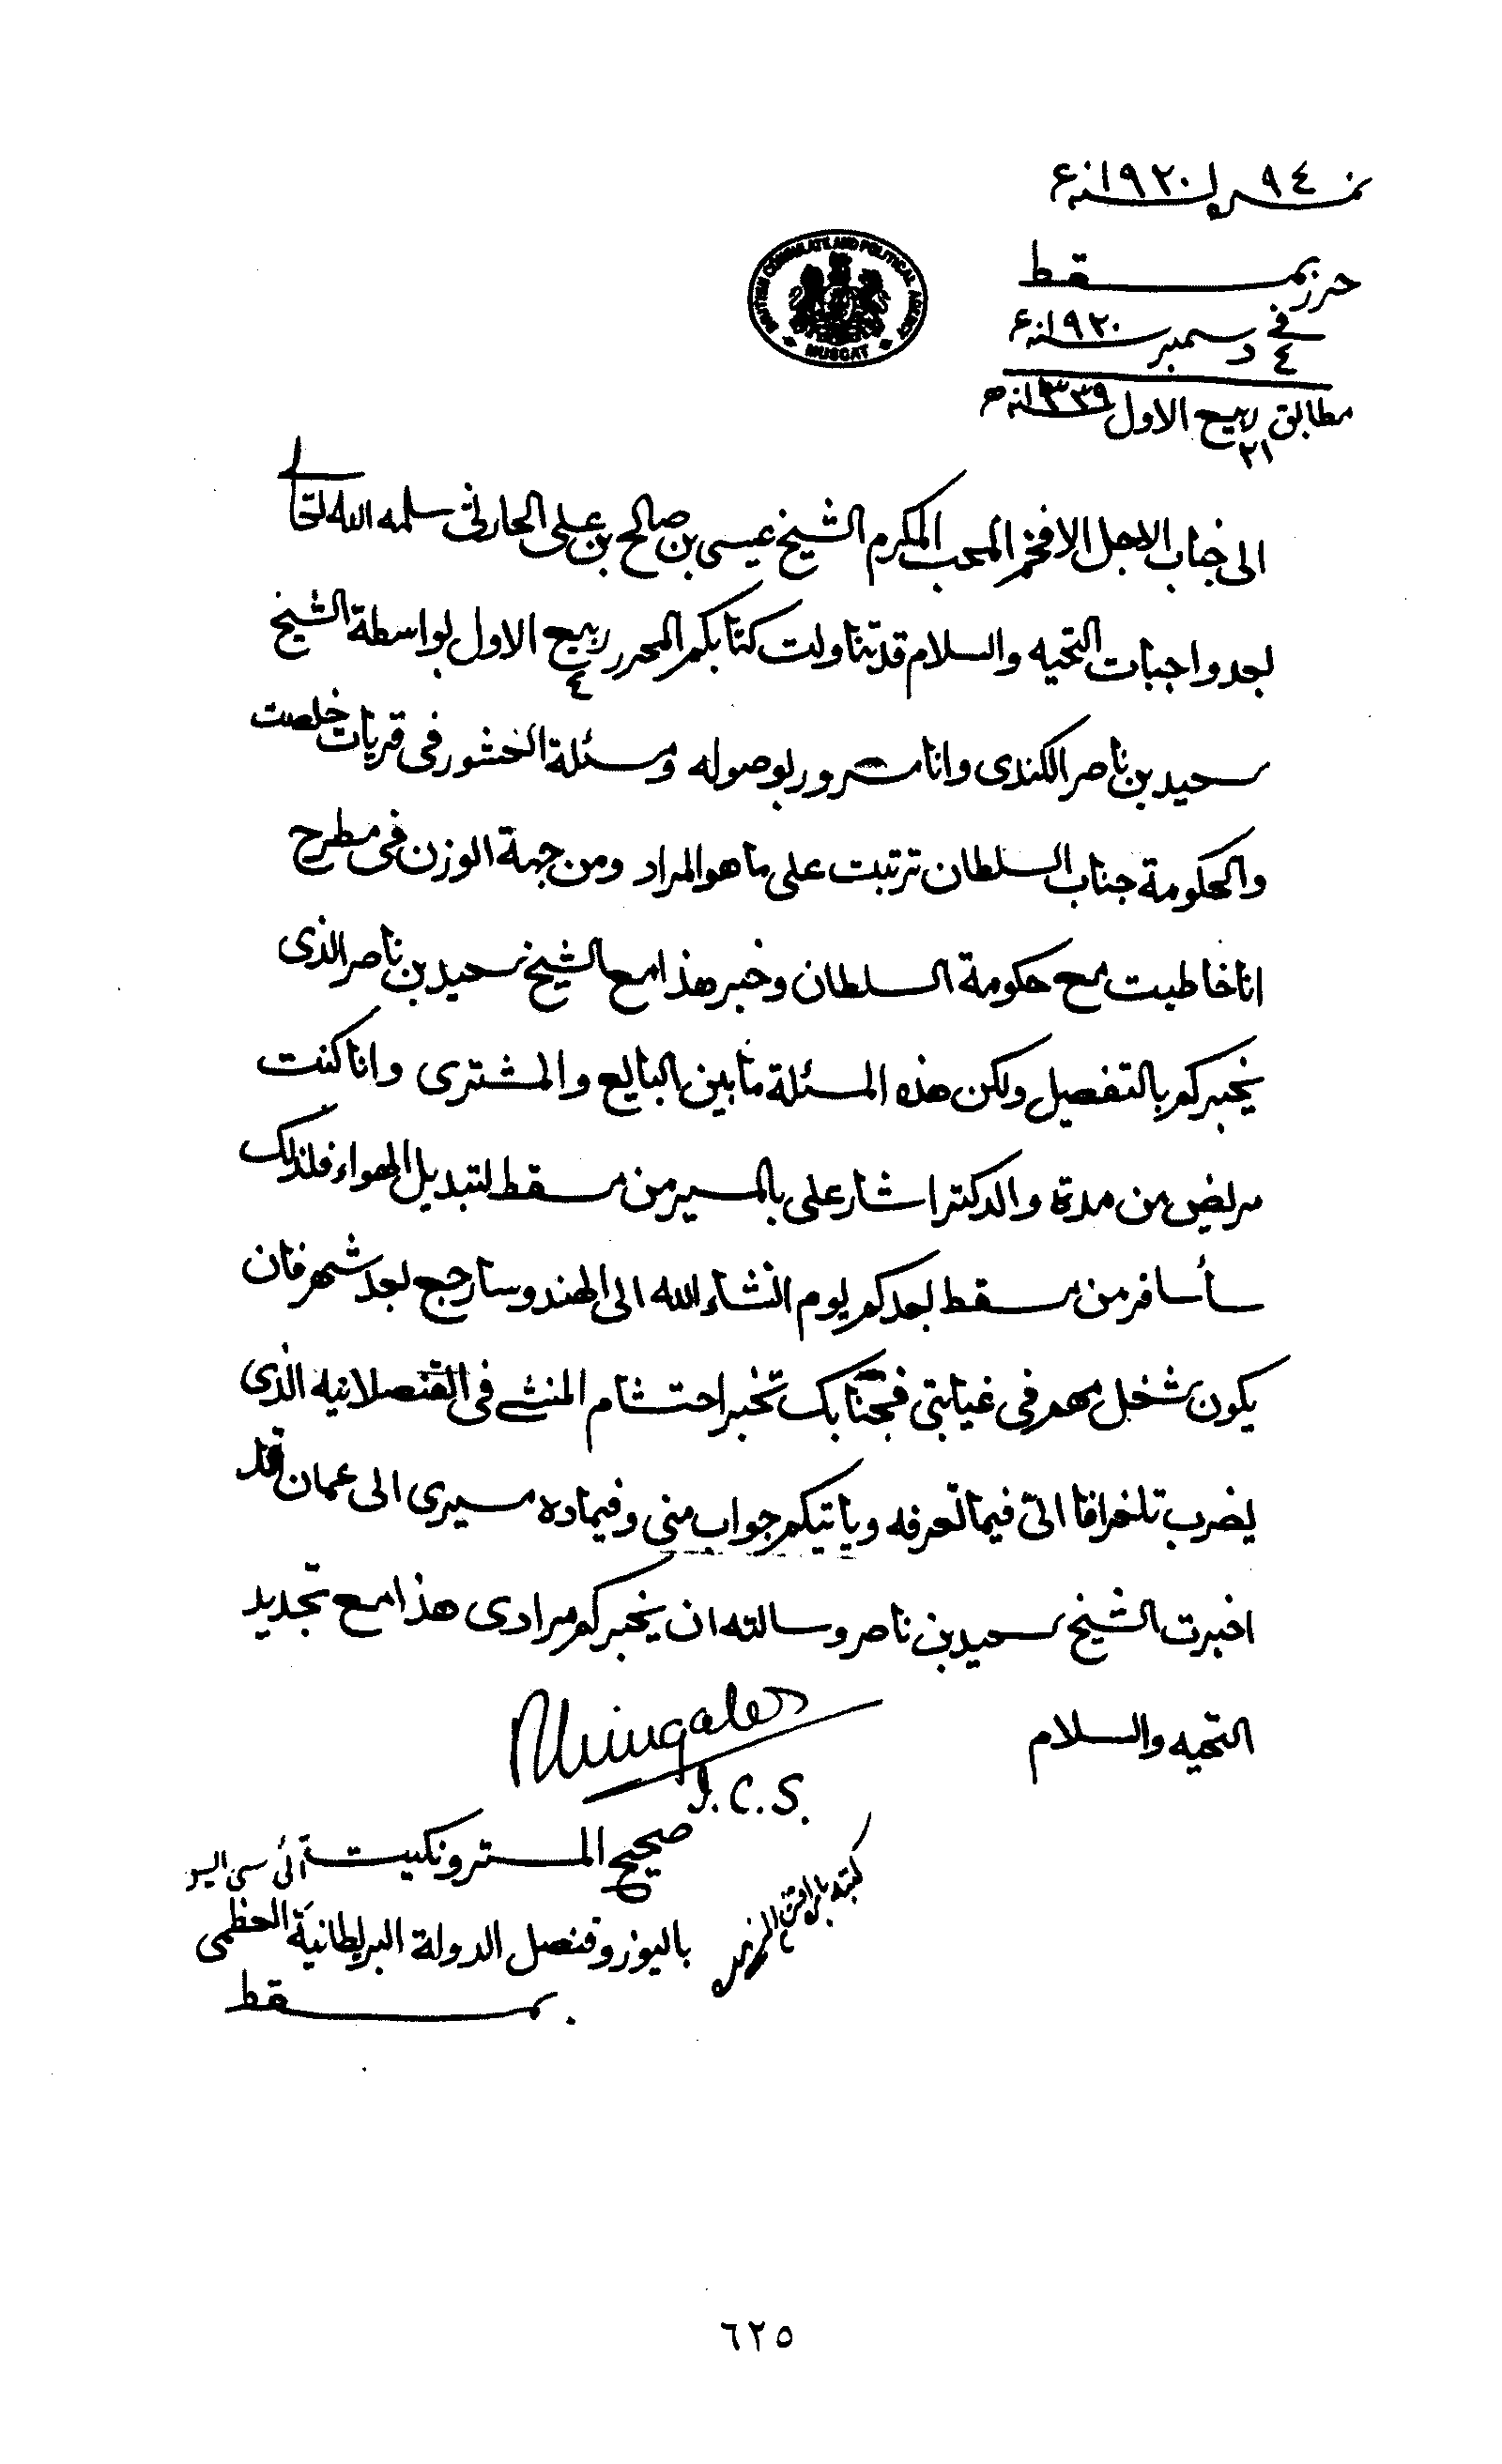 نمره ٩٤ لسنه ١٩٢٠ء
حرر بمسقط
BRITISH CONSULATE AND POLITICAL AGENCY
MUSCAT
في ٤ دسمبر سنه ١٩٢٠ء
مطابق ٢١ ربيع الاول ١٣٣٩نه ه
الى جناب الاجل الافخم المحب المكرم الشيخ عيسى بن صالح بن علي الحارثى سلمه الله تعالى
بعد واجبات التحيه والسلام قد تناولت كتابكم المحرر ٤ ربيع الاول بواسطة الشيخ
سعيد بن ناصر الكندى وانا مسرور بوصوله ومسئلة العشور فى قريات خلصت
والحكومة جناب السلطان ترتبت على ما هو المراد ومن جهة الوزن فى مطرح
انا خاطبت مع حكومة السلطان وخبر هذا مع الشيخ سعيد بن ناصر الذى
يخبركم بالتفصيل ولكن هذه المسئلة ما بين البايع والمشترى وانا كنت
مريض من مدة والدكتر اشار على بالمسير من مسقط لتبديل الهواء فلذلك
سأسافر من مسقط بعدكم يوم انشاء الله الى الهند وسارجع بعد شهر فان
يكون شغل مهم فى غيابتى فجنابك تخبر احتشام المنشے فى القنصلانيه الذى
يضرب تلغرافا الىّ فيما تعرفه وياتيكم جواب منى وفيماده مسيرى الى عمان قد
اخبرت الشيخ سعيد بن ناصر وسالته ان يخبركم مرادى هذا مع تجديد
التحيه والسلام
Wingate
I.C.S.
صحيح المستر ونكيت آئى سى ايس
كتبه بامره
باليوز وقنصل الدولة البريطانية العظمى
بمسقط
٦٢٥